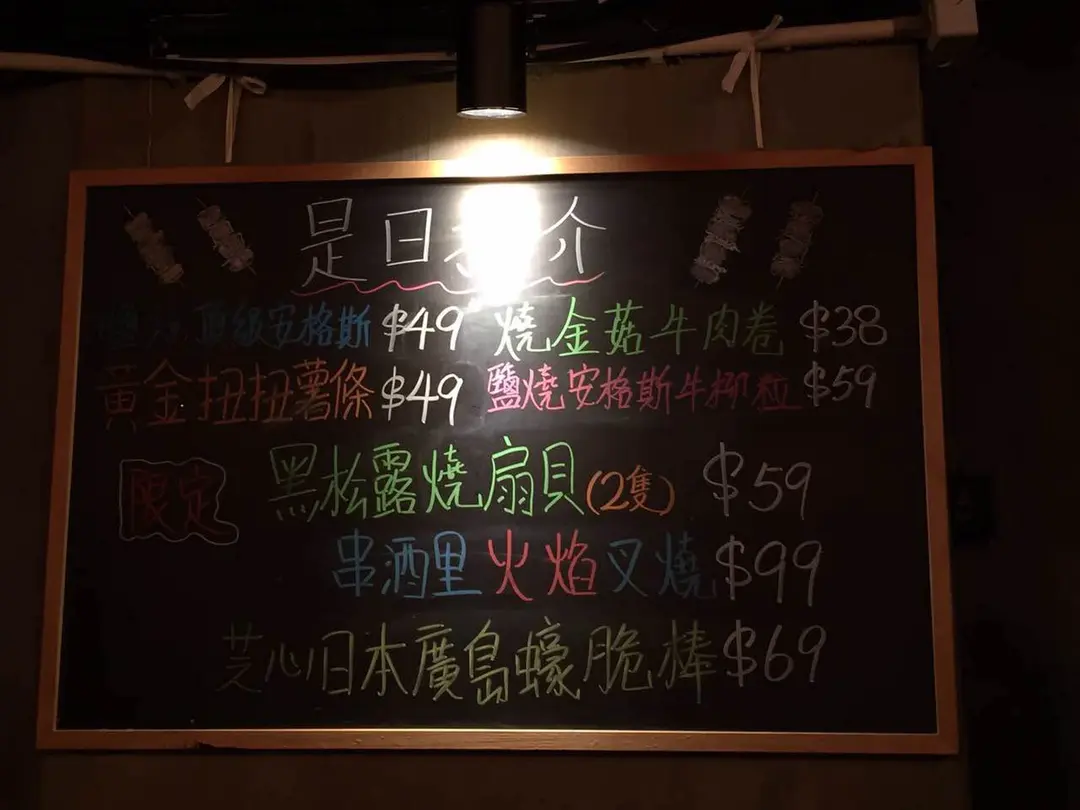 是日推介
頂級安格斯 $49 燒金菇牛肉卷 $38
黃金扭扭薯條 $49 鹽燒安格斯牛柳粒 $59
限定 黑松露燒扇貝(2隻) $59
串酒里火焰叉燒 $99
芝心日本廣島蠔脆棒 $69